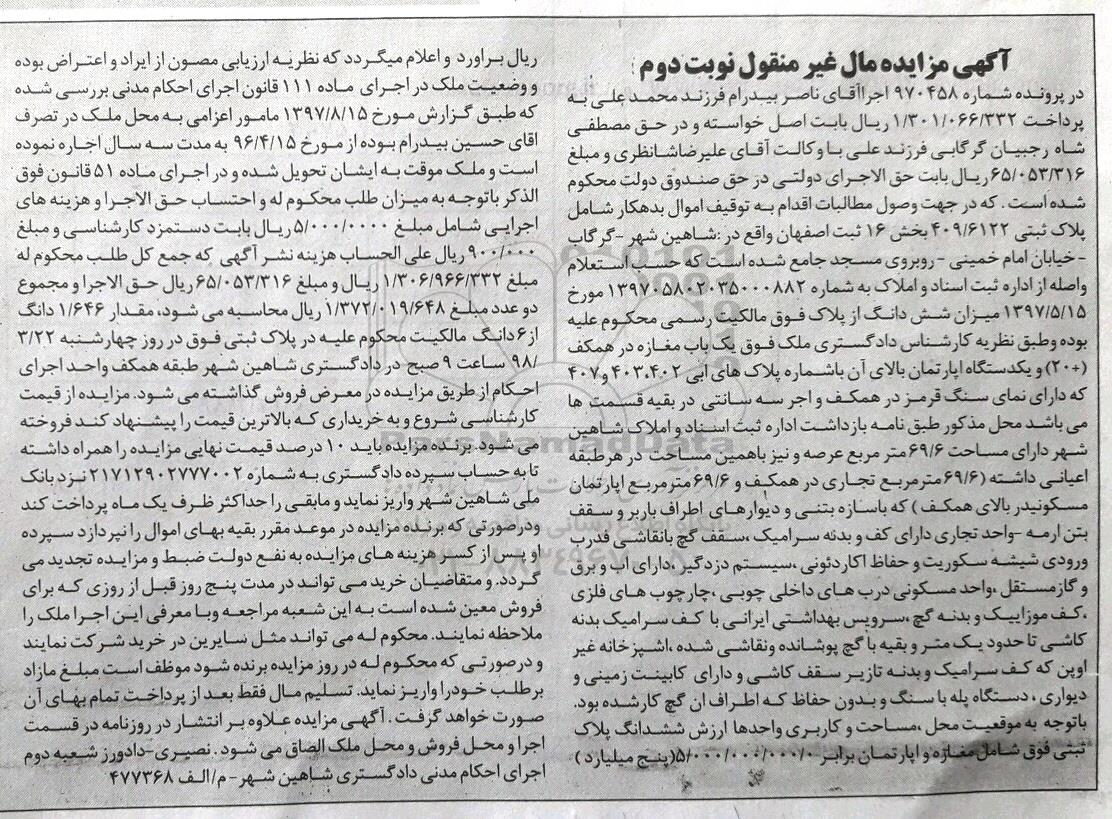 آگهی مزایده مال غیر منقول نوبت دوم
در پرونده شماره ۹۷۰۴۵۸ اجراآقای ناصر بیدرام فرزند محمد علی به
پرداخت ۱/۳۰۱/۰۶۶/۳۳۲ ریال بابت اصل خواسته و در حق مصطفی
شاه رجبیان گرگابی فرزند علی با وکالت آقای علیرضاشانظری و مبلغ
۶۵/۰۵۳/۳۱۶ ریال بابت حق الاجرای دولتی در حق صندوق دولت محکوم
شده است . که در جهت وصول مطالبات اقدام به توقیف اموال بدهکار شامل
پلاک ثبتی ۴۰۹/۶۱۲۲ بخش ۱۶ ثبت اصفهان واقع در :شاهین شهر -گرگاب
-خیابان امام خمینی -روبروی مسجد جامع شده است که حسب استعلام
واصله از اداره ثبت اسناد و املاک به شماره ۱۳۹۷۰۵۸۰۲۰۳۵۰۰۰۸۸۲ مورخ
۱۳۹۷/۵/۱۵ میزان شش دانگ از پلاک فوق مالکیت رسمی محکوم علیه
بوده وطبق نظریه کارشناس دادگستری ملک فوق یک باب مغازه در همکف
(+۲۰) و یکدستگاه اپارتمان بالای آن باشماره پلاک های ابی ۴۰۳،۴۰۲ و ۴۰۷
که دارای نمای سنگ قرمز در همکف و اجر سه سانتی در بقیه قسمت ها
می باشد محل مذکور طبق نامه بازداشت اداره ثبت اسناد و املاک شاهین
شهر دارای مساحت ۶۹/۶ متر مربع عرصه و نیز باهمین مساحت در هرطبقه
اعیانی داشته (۶۹/۶مترمربع تجاری در همکف و ۶۹/۶مترمربع اپارتمان
مسکونیدر بالای همکف ) که باسازه بتنی و دیوارهای اطراف باربر و سقف
بتن ارمه -واحد تجاری دارای کف و بدنه سرامیک ،سقف گچ بانقاشی فدرب
ورودی شیشه سکوریت و حفاظ اکاردئونی ،سیستم دزدگیر ،دارای اب و برق
و گازمستقل ،واحد مسکونی درب های داخلی چوبی ،چارچوب های فلزی
،کف موزاییک و بدنه گچ ،سرویس بهداشتی ایرانی با کف سرامیک بدنه
کاشی تا حدود یک متر و بقیه با گچ پوشانده ونقاشی شده ،اشپزخانه غیر
اوپن که کف سرامیک و بدنه تازیر سقف کاشی و دارای کابینت زمینی و
دیواری ، دستگاه پله با سنگ و بدون حفاظ که اطراف ان گچ کارشده بود.
باتوجه به موقعیت محل ،مساحت و کاربری واحدها ارزش ششدانگ پلاک
ثبتی فوق شامل مغازه و اپارتمان برابر ۵/۰۰۰/۰۰۰/۰۰۰/۰(پنج میلیارد )
ریال براورد و اعلام میگردد که نظریه ارزیابی مصون از ایراد و اعتراض بوده
و وضعیت ملک در اجرای ماده ۱۱۱ قانون اجرای احکام مدنی بررسی شده
که طبق گزارش مورخ ۱۳۹۷/۸/۱۵ مامور اعزامی به محل ملک در تصرف
اقای حسین بیدرام بوده از مورخ ۹۶/۴/۱۵ به مدت سه سال اجاره نموده
است و ملک موقت به ایشان تحویل شده و در اجرای ماده ۵۱ قانون فوق
الذکر باتوجه به میزان طلب محکوم له و احتساب حق الاجرا و هزینه های
اجرایی شامل مبلغ ۵/۰۰۰/۰۰۰۰ ریال بابت دستمزد کارشناسی و مبلغ
۹۰۰/۰۰۰ ریال علی الحساب هزینه نشر آگهی که جمع کل طلب محکوم له
مبلغ ۱/۳۰۶/۹۶۶/۳۳۲ ریال و مبلغ ۶۵/۰۵۳/۳۱۶ ریال حق الاجرا و مجموع
دو عدد مبلغ ۱/۳۷۲/۰۱۹/۶۴۸ ریال محاسبه می شود، مقدار ۱/۶۴۶ دانگ
از ۶ دانگ مالکیت محکوم علیه در پلاک ثبتی فوق در روز چهارشنبه ۳/۲۲
/۹۸ ساعت ۹ صبح در دادگستری شاهین شهر طبقه همکف واحد اجرای
احکام از طریق مزایده در معرض فروش گذاشته می شود. مزایده از قیمت
کارشناسی شروع و به خریداری که بالاترین قیمت را پیشنهاد کند فروخته
می شود. برنده مزایده باید ۱۰ درصد قیمت نهایی مزایده را همراه داشته
تا به حساب سپرده دادگستری به شماره ۲۱۷۱۲۹۰۲۷۷۷۰۰۲ نزد بانک
ملی شاهین شهر واریز نماید و مابقی را حداکثر ظرف یک ماه پرداخت کند
ودرصورتی که برنده مزایده در موعد مقرر بقیه بهای اموال را نپردازد سپرده
او پس از کسر هزینه های مزایده به نفع دولت ضبط و مزایده تجدید می
گردد. و متقاضیان خرید می تواند در مدت پنج روز قبل از روزی که برای
فروش معین شده است به این شعبه مراجعه وبا معرفی این اجرا ملک را
ملاحظه نمایند. محکوم له می تواند مثل سایرین در خرید شرکت نمایند
و درصورتی که محکوم له در روز مزایده برنده شود موظف است مبلغ مازاد
برطلب خودرا واریز نماید. تسلیم مال فقط بعد از پرداخت تمام بهای آن
صورت خواهد گرفت . آگهی مزایده علاوه بر انتشار در روزنامه در قسمت
اجرا و محل فروش و محل ملک الصاق می شود . نصیری-دادورز شعبه دوم
اجرای احکام مدنی دادگستری شاهین شهر - م/الف ۴۷۷۳۶۸
ParsNamadData